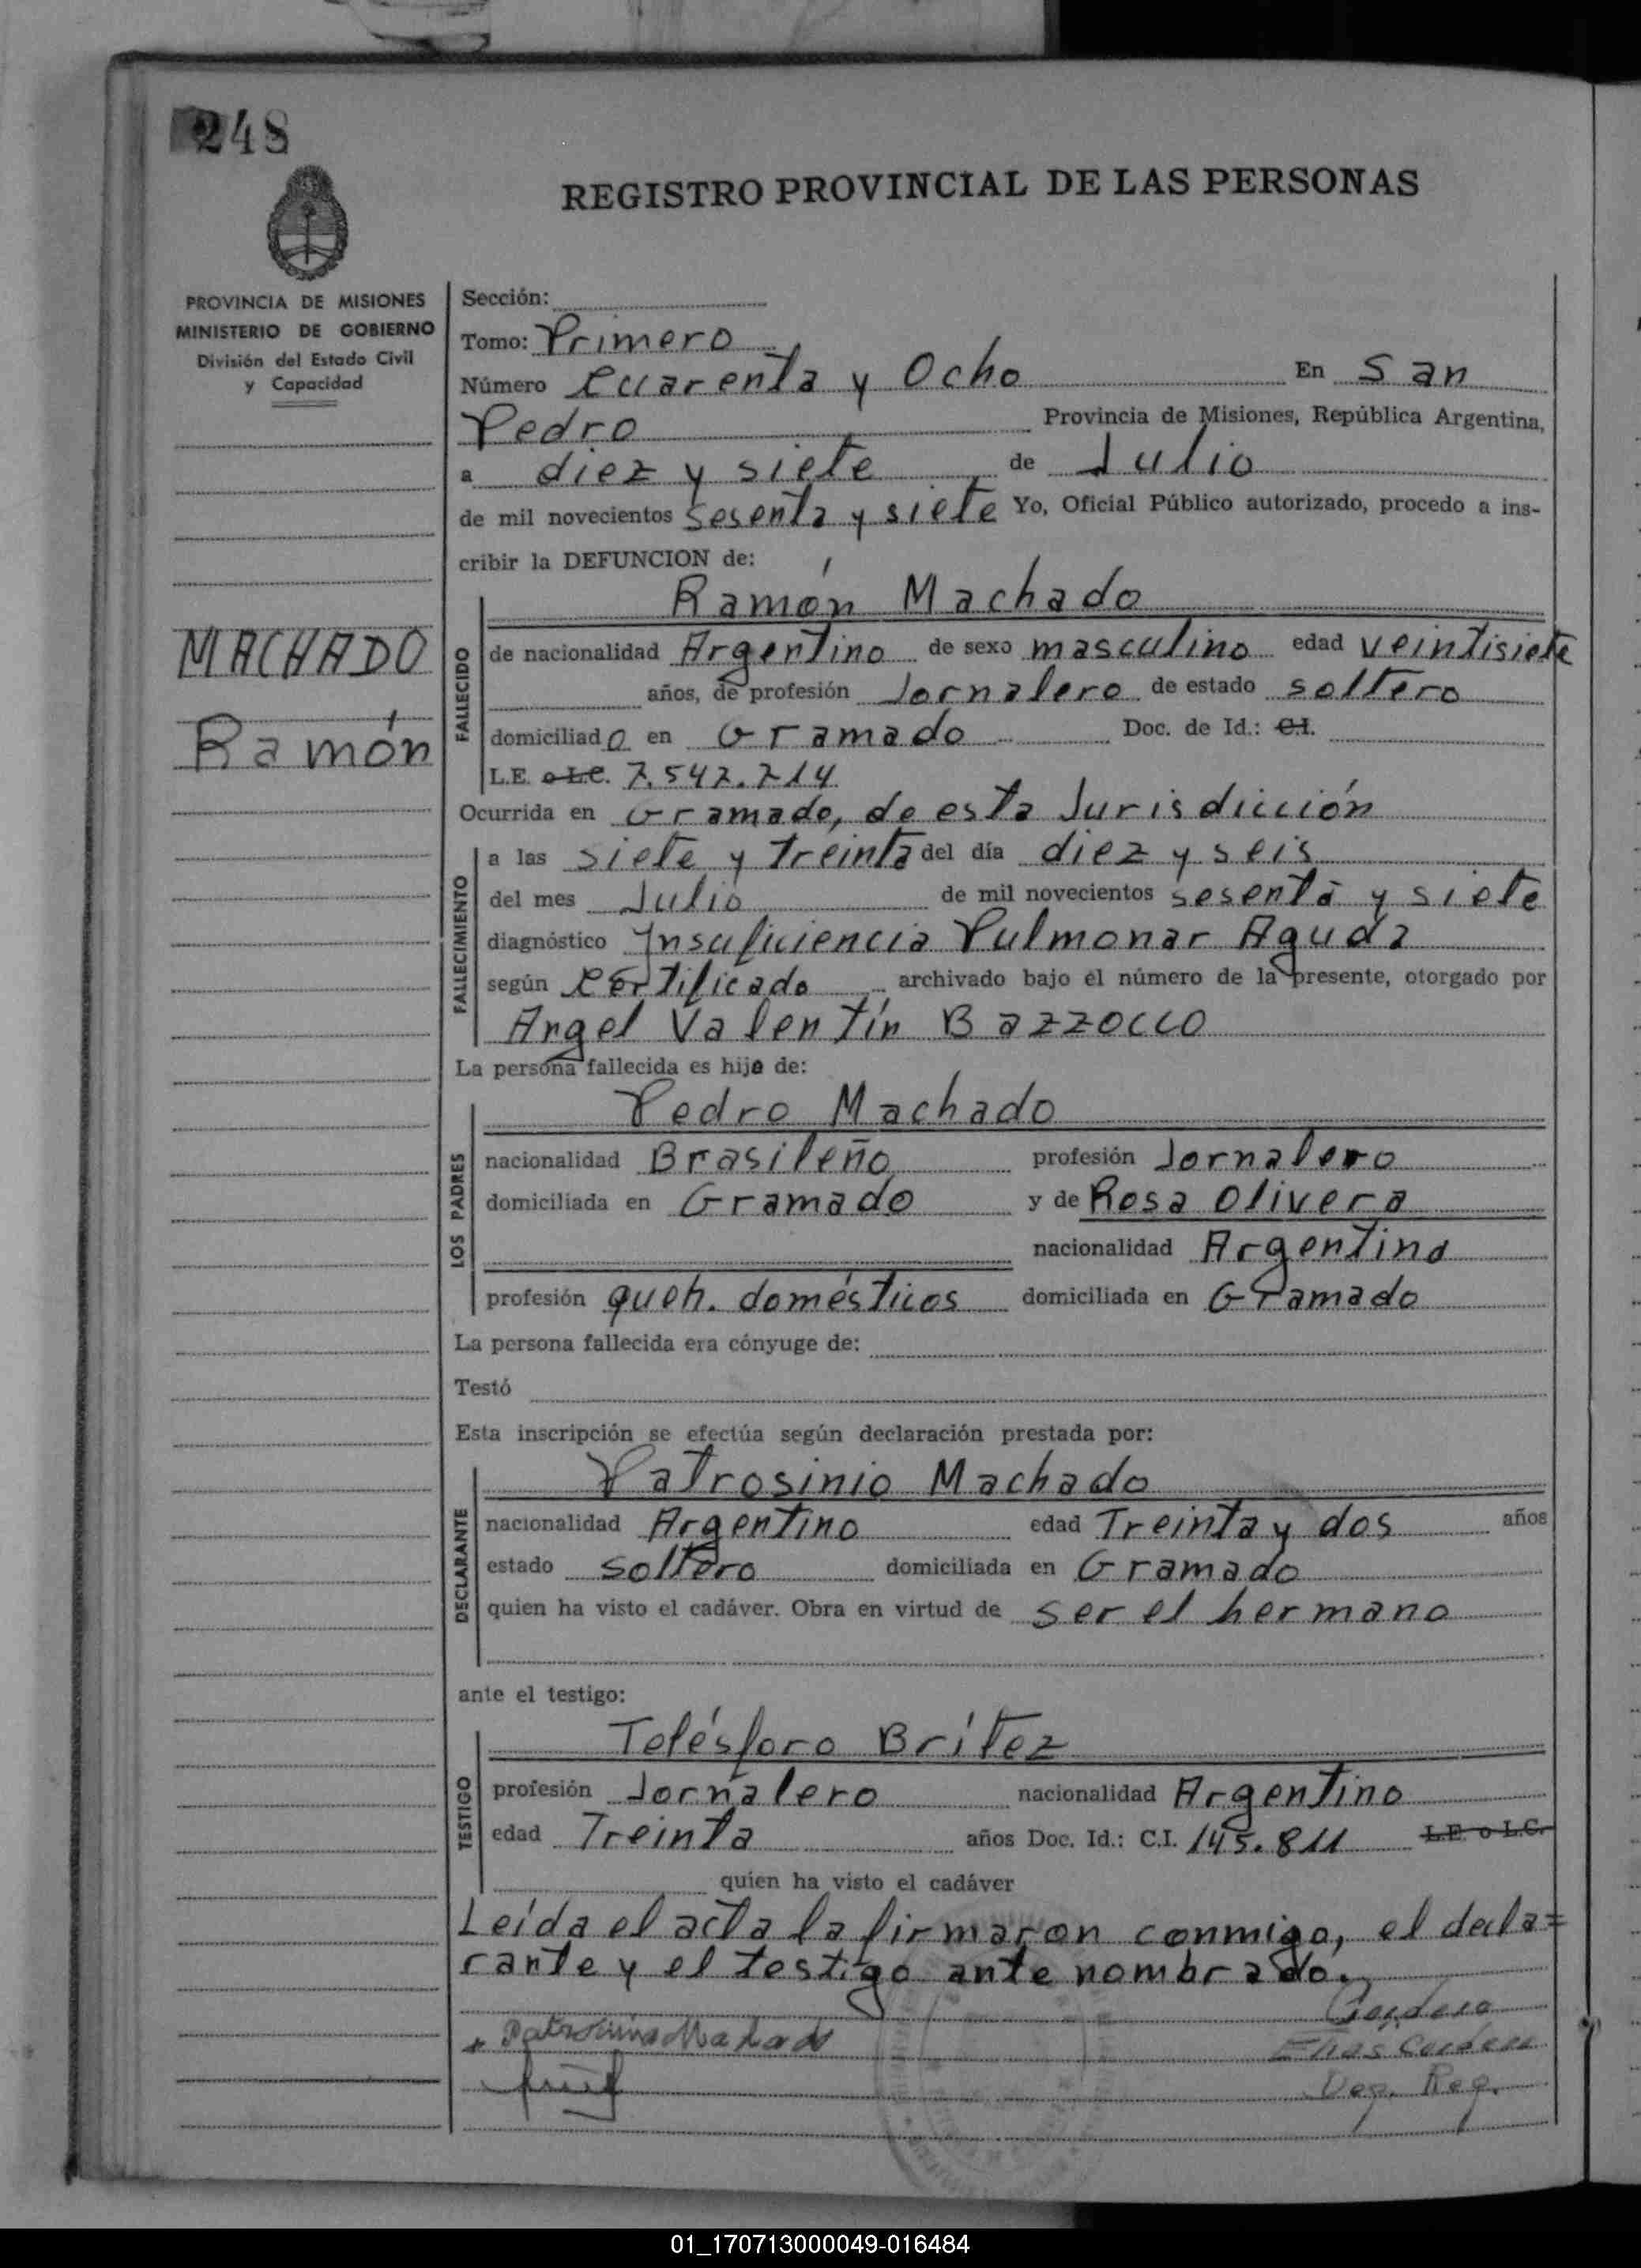 248
REGISTRO PROVINCIAL DE LAS PERSONAS
PROVINCIA DE MISIONES
MINISTERIO DE GOBIERNO
División del Estado Civil
y Capacidad
MACHADO
Ramón
Sección:
Tomo: Primero
Número Cuarenta y Ocho En San
Pedro Provincia de Misiones, República Argentina,
a diez y siete de Julio
de mil novecientos sesenta y siete Yo, Oficial Público autorizado, procedo a ins-
cribir la DEFUNCION de:
Ramón Machado
FALLECIDO
de nacionalidad Argentino de sexo masculino edad veintisiete
años, de profesión Jornalero de estado soltero
domiciliado en Gramado Doc. de Id.: C.I.
L.E. o L.C. 7.542.714
Ocurrida en Gramado, de esta Jurisdicción
FALLECIMIENTO
a las siete y treinta del día diez y seis
del mes Julio de mil novecientos sesenta y siete
diagnóstico Ynsuficiencia Pulmonar Aguda
según Certificado archivado bajo el número de la presente, otorgado por
Angel Valentín Bazzocco
La persona fallecida es hijo de:
LOS PADRES
Pedro Machado
nacionalidad Brasileño profesión Jornalero
domiciliada en Gramado y de Rosa Olivera
nacionalidad Argentina
profesión queh. domésticos domiciliada en Gramado
La persona fallecida era cónyuge de:
Testó
Esta inscripción se efectúa según declaración prestada por:
DECLARANTE
Patrosinio Machado
nacionalidad Argentino edad Treinta y dos años
estado soltero domiciliada en Gramado
quien ha visto el cadáver. Obra en virtud de ser el hermano
ante el testigo:
TESTIGO
Telésforo Brítez
profesión Jornalero nacionalidad Argentino
edad Treinta años Doc. Id.: C.I. 145.811 L.E. o L.C.
quien ha visto el cadáver
Leída el acta la firmaron conmigo, el decla=
rante y el testigo ante nombrado.
Cordero
Patrosinio Machado
Elías Cordero
Reg.
01_170713000049-016484